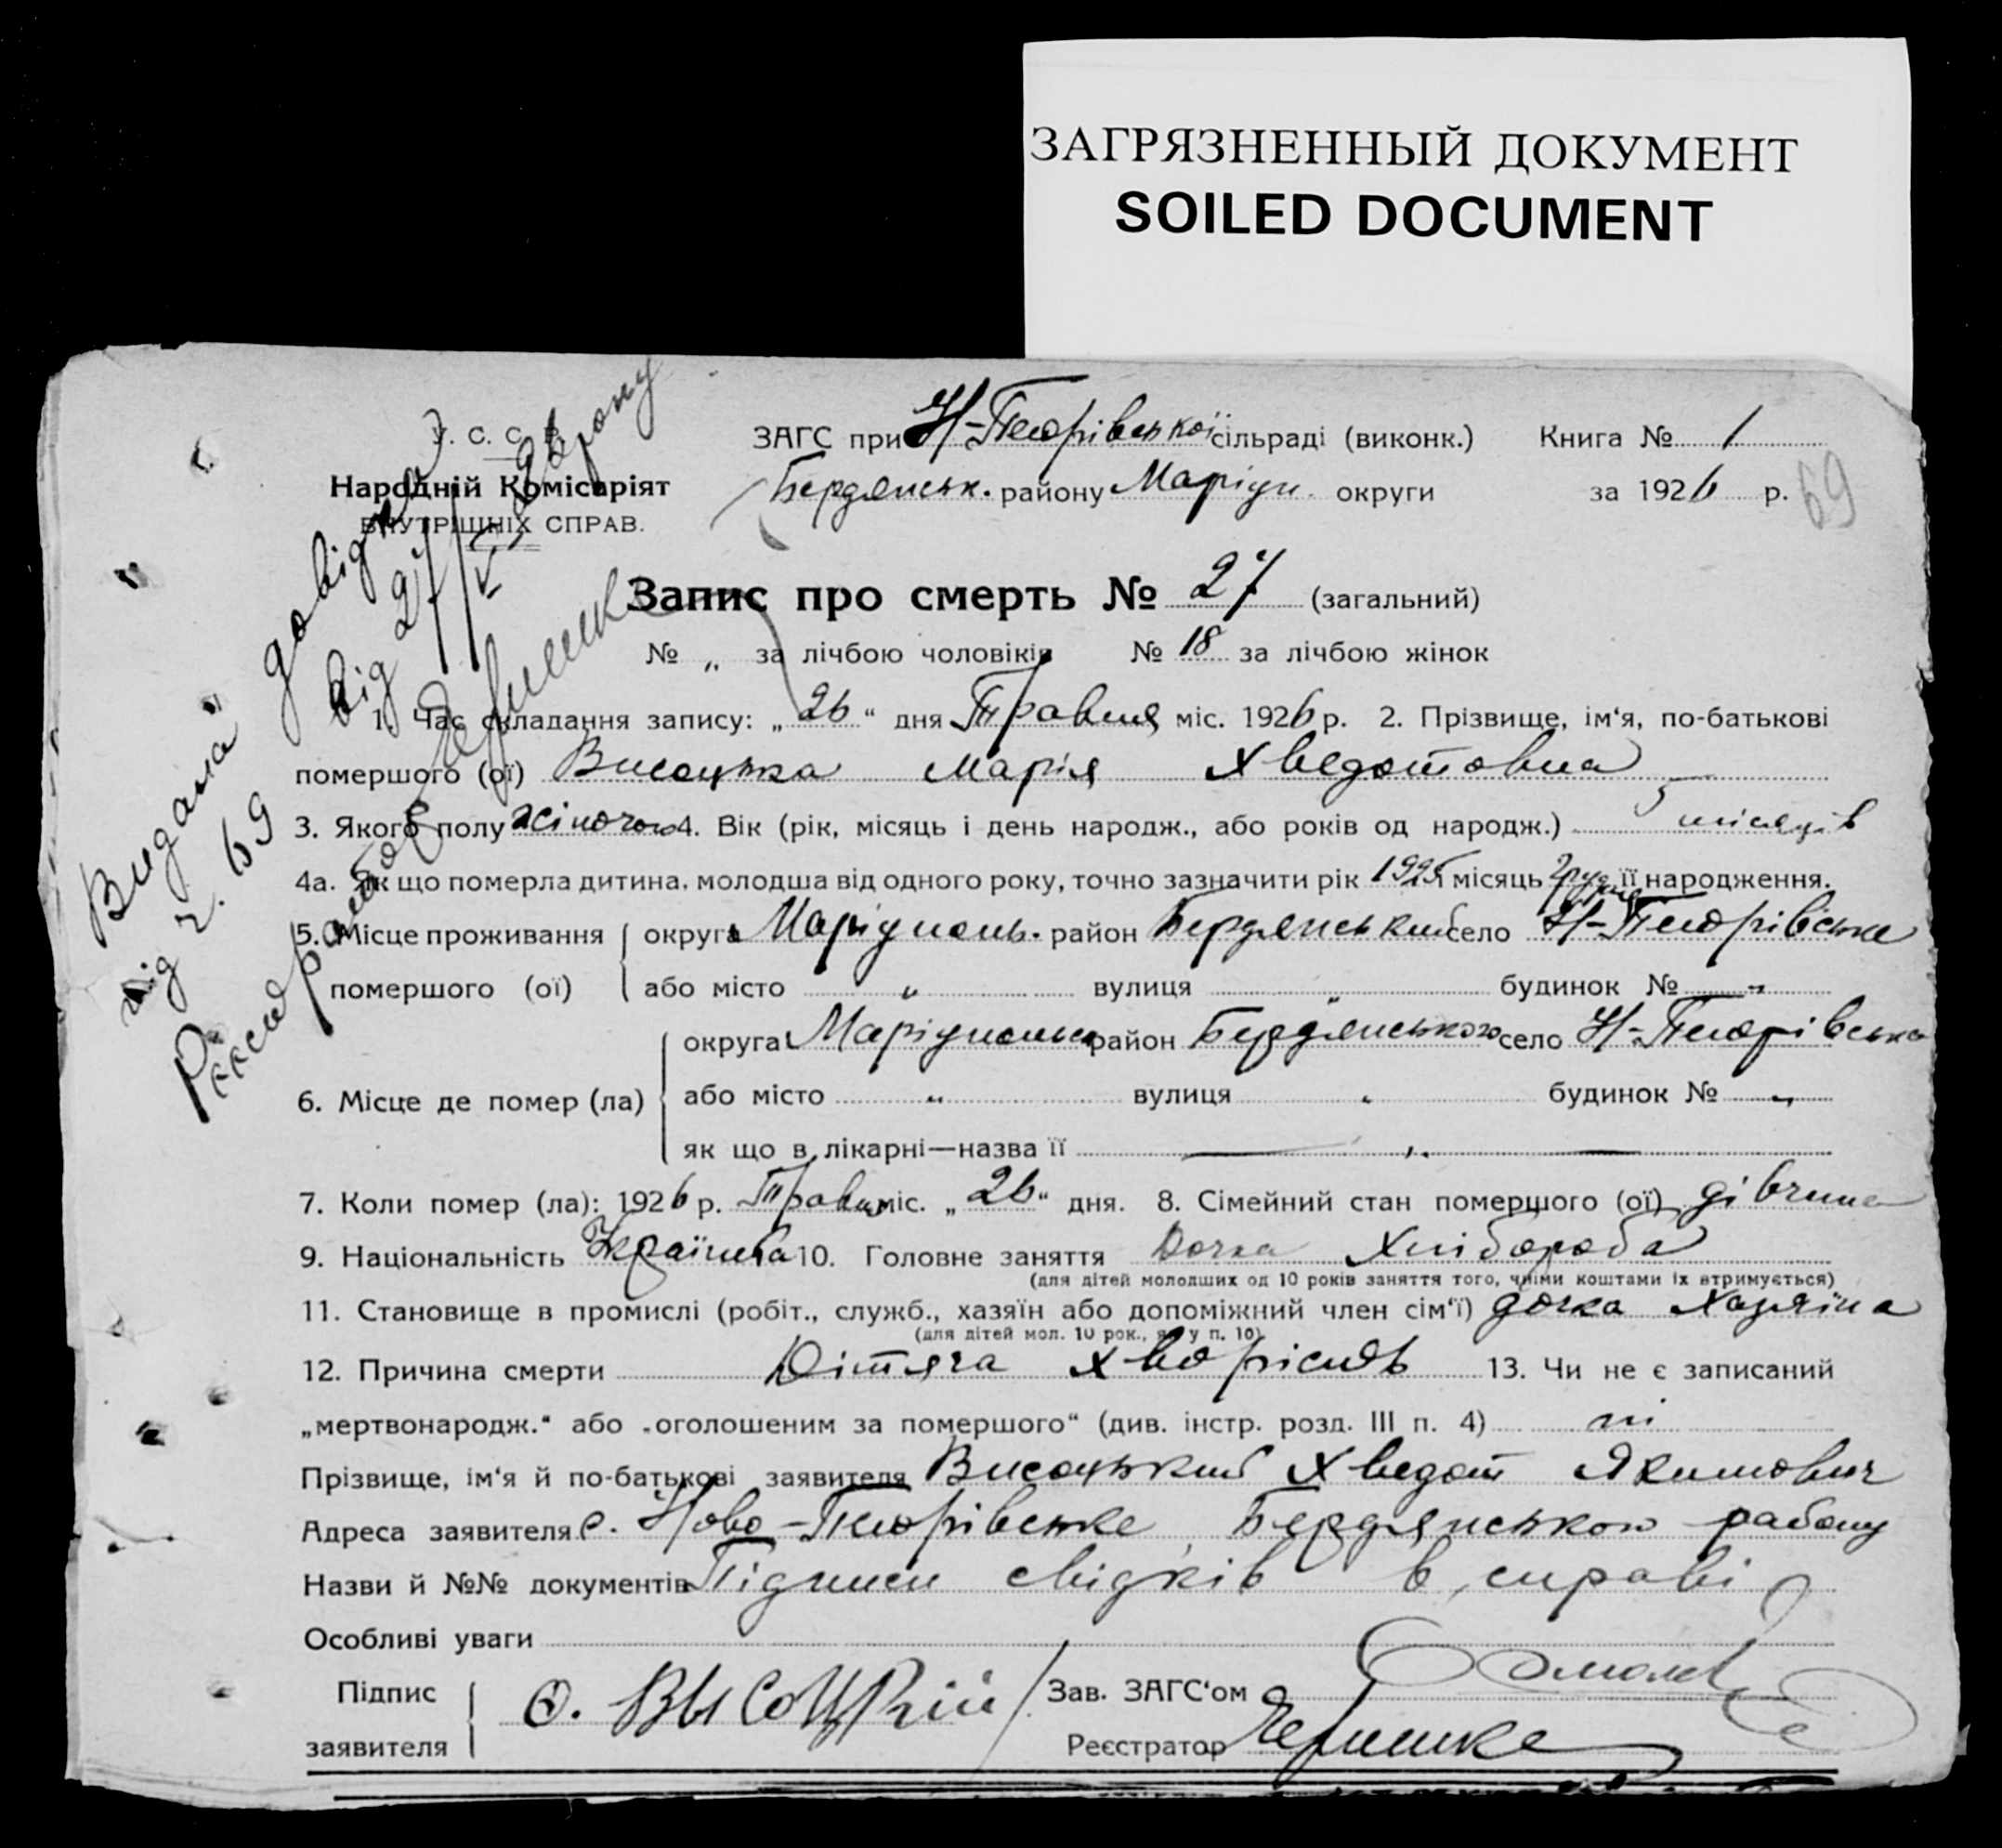 ЗАГРЯЗНЕННЫЙ ДОКУМЕНТ
SOILED DOCUMENT
У. С. С. Р.
Народній Комісаріят
ВНУТРІШНІХ СПРАВ.
ЗАГС при Н-Петрівської сільраді (виконк.) Книга № 1
Бердянськ. району Маріуп. округи за 1926 р.
69
Видана довідка
від 27/V 26 року
під ч. 69
Реєстратор
Запис про смерть № 27 (загальний)
№ „ за лічбою чоловіків № 18 за лічбою жінок
1. Час складання запису: „26“ дня Травня міс. 1926 р. 2. Прізвище, ім‘я, по-батькові
помершого (ої) Висоцька Марія Хведотовна
3. Якого полу жіночого 4. Вік (рік, місяць і день народж., або років од народж.) 5 місяців
4а. Як що померла дитина, молодша від одного року, точно зазначити рік 1925 місяць Грудня її народження.
5. Місце проживання округа Маріуполь. район Бердянський село Н-Петрівське
помершого (ої) або місто „ вулиця „ будинок № „
округа Маріупольск район Бердянського село Н-Петрівська
6. Місце де помер (ла) або місто „ вулиця „ будинок № „
як що в лікарні—назва її „
7. Коли помер (ла): 1926 р. Травня міс. „26“ дня. 8. Сімейний стан помершого (ої) дівчина
9. Національність Українка 10. Головне заняття Дочка Хлібороба
(для дітей молодших од 10 років заняття того, чиїми коштами їх втримується)
11. Становище в промислі (робіт., служб., хазяїн або допоміжний член сім‘ї) дочка Хазяїна
(для дітей мол. 10 рок., як у п. 10)
12. Причина смерти Дітяча хворість 13. Чи не є записаний
„мертвонародж.“ або „оголошеним за помершого“ (див. інстр. розд. III п. 4) ні
Прізвище, ім‘я й по-батькові заявителя Висоцький Хведот Якимович
Адреса заявителя с. Ново-Петрівське Бердянського району
Назви й №№ документів Підписи свідків в справі
Особливі уваги
Підпис заявителя Ф. Высоцкій Зав. ЗАГС‘ом
Реєстратор